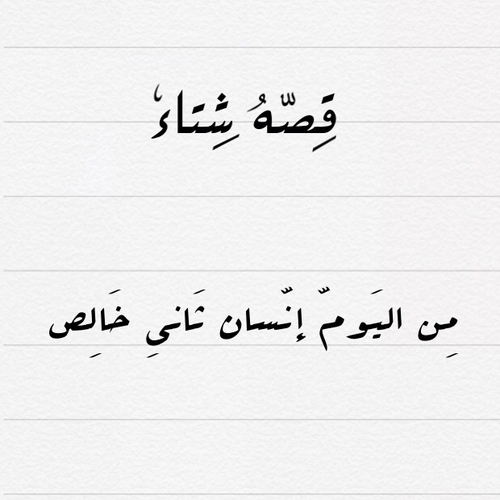 قِصّهُ شِتاءْ
مِن اليَومّ إنّسان ثَاني خَالِص